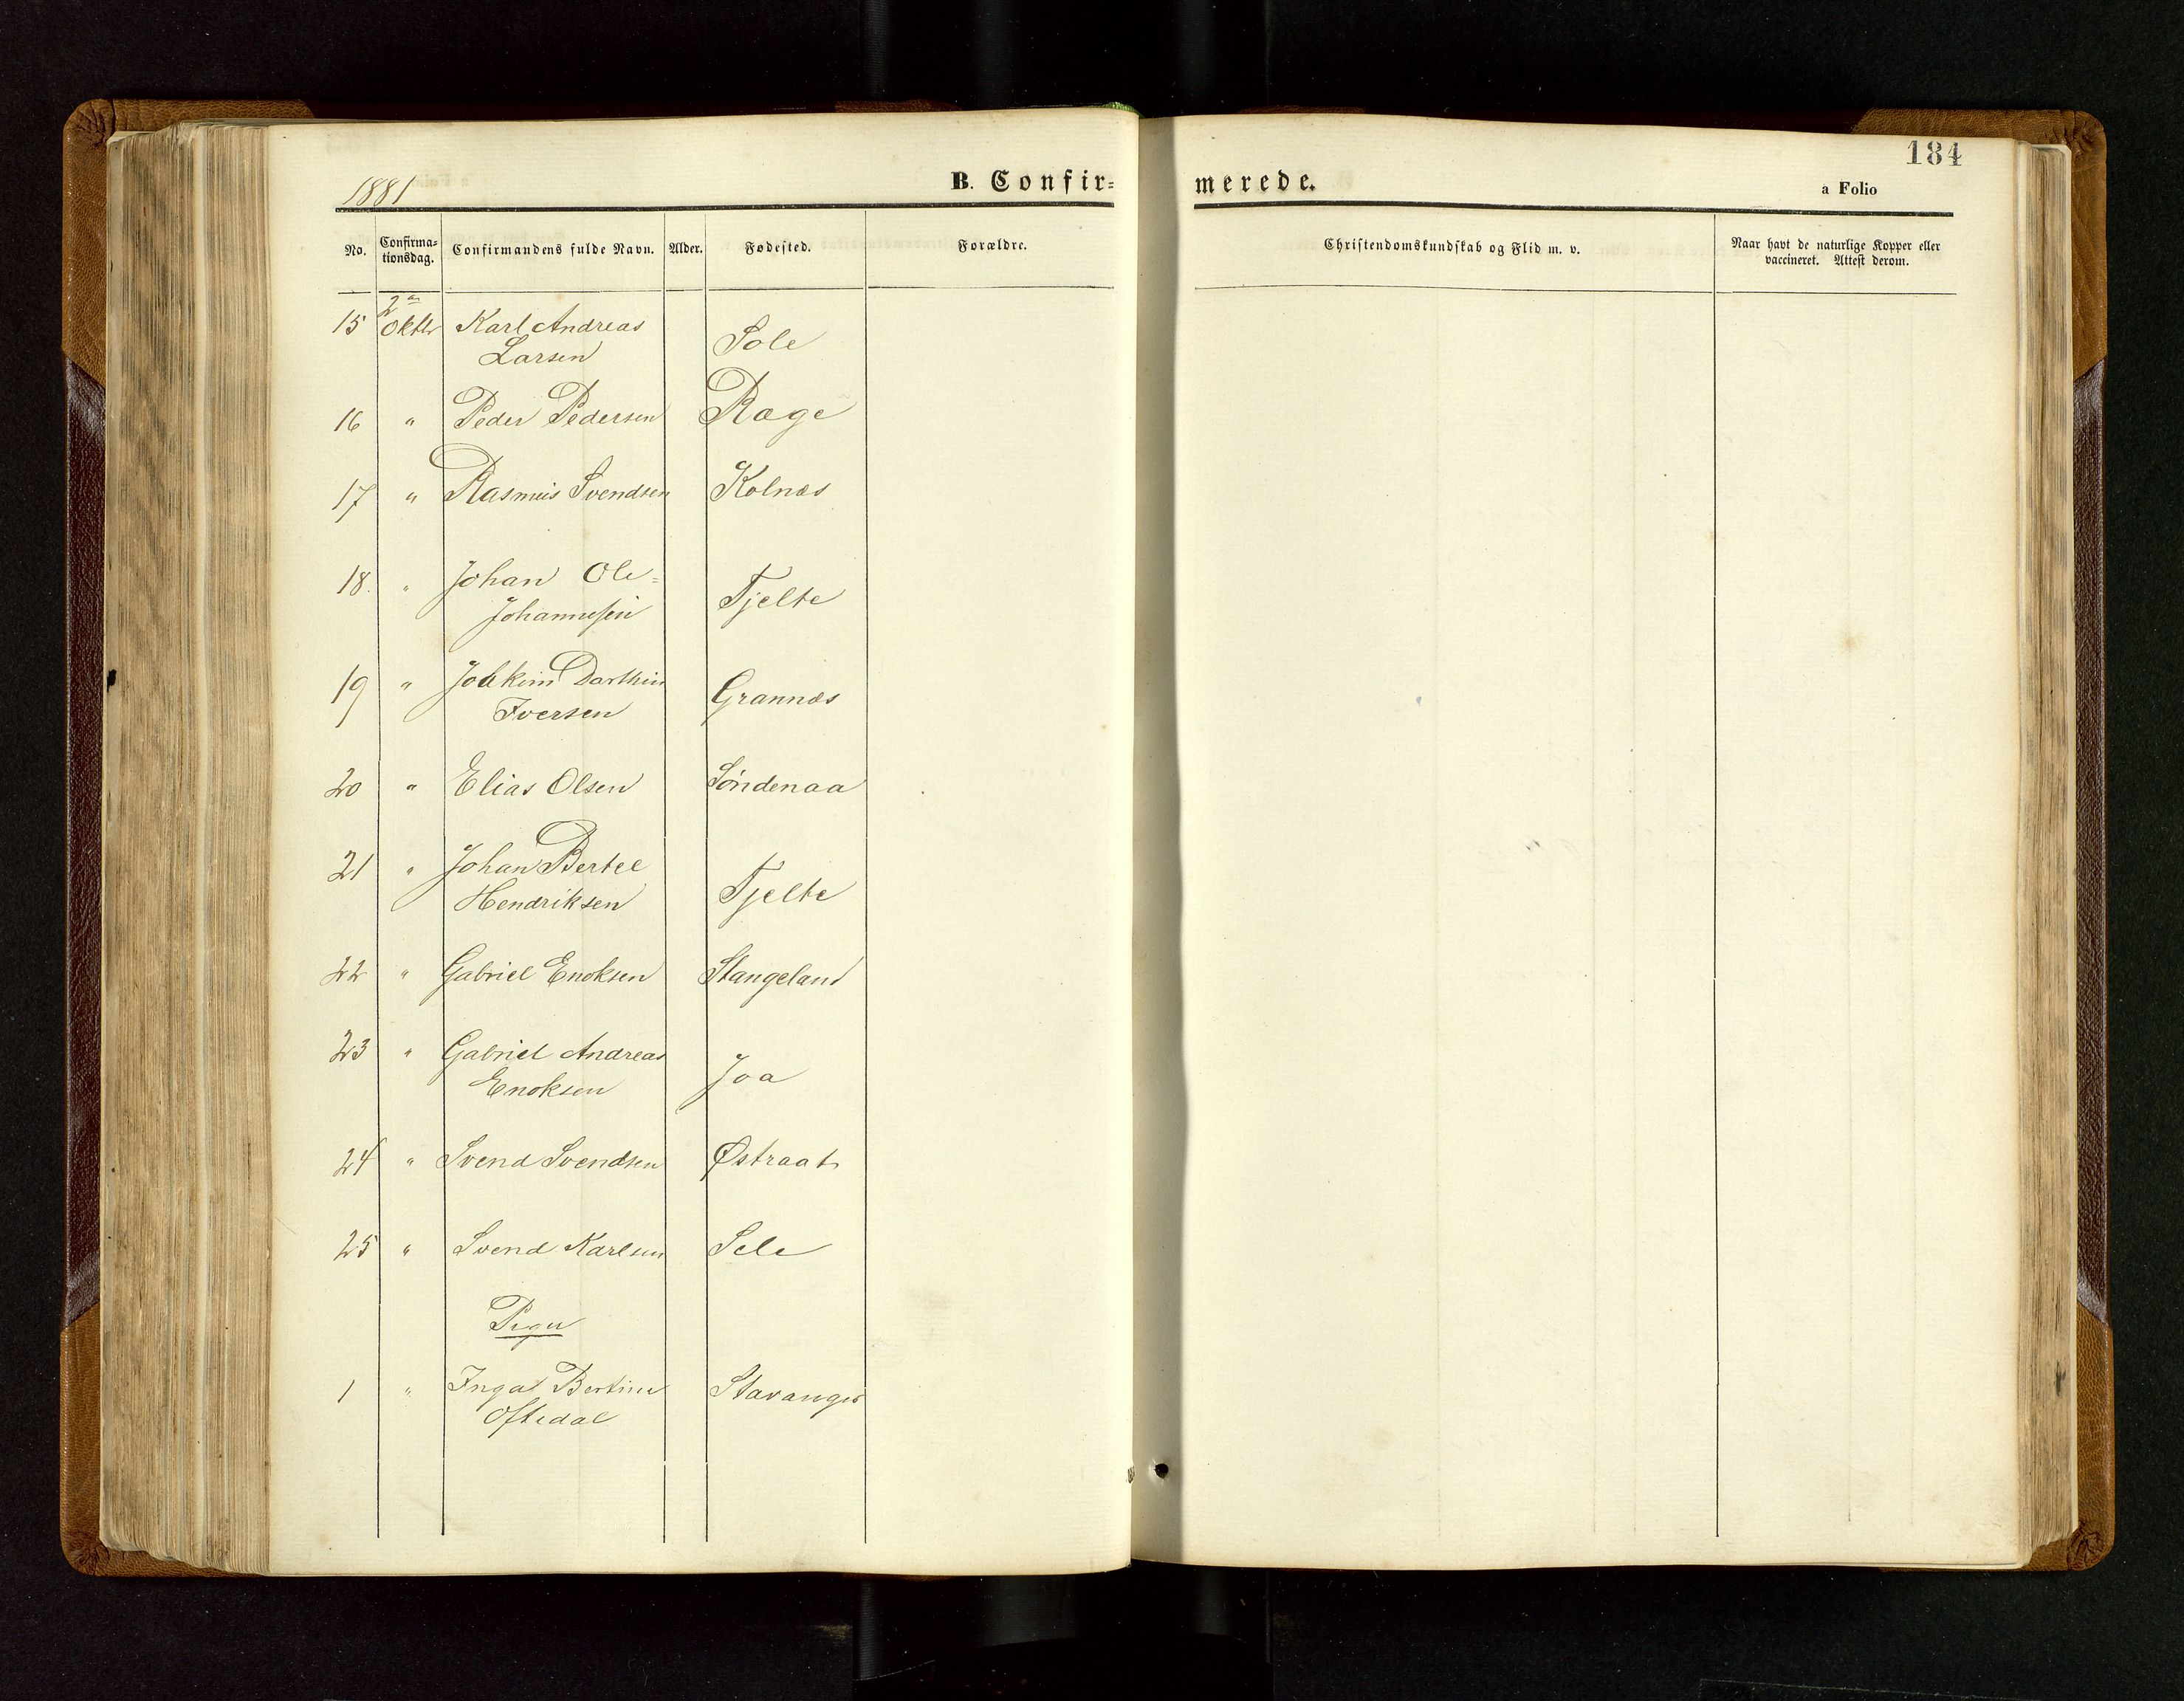 184
1881 B. Confir= merede. a Folio
No. Confirma=tionsdag. Confirmandens fulde Navn. Alder. Fødested. Forældre. Christendomskundskab og Flid m. v. Naar havt de naturlige Kopper eller vaccineret. Attest derom.
2den
15 Oktbr Karl Andreas
Larsen Sole
16 " Peder Pedersen Ræge
17 " Rasmus Svendsen Kolnæs
18. " Johan Ole=
Johannesen Tjelte
19 " Joakim Darthin
Iversen Grannæs
20 " Elias Olsen Søndenaa
21 " Johan Bertel
Hendriksen Tjelte
22 " Gabriel Enoksen Stangeland
23 " Gabriel Andreas
Enoksen Joa
24 " Svend Svendsen Østraat
25 " Svend Karlsen Sele
Piger
1 " Inga Bertine Stavanger
Oftedal